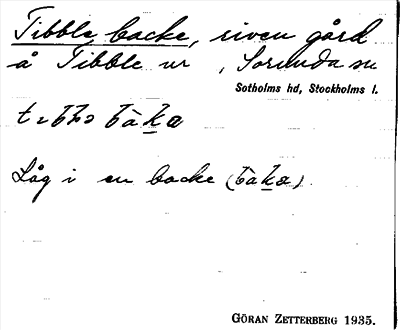 Tibble backe, riven gård
å Tibble nr , Sorunda sn
Sotholms hd, Stockholms l.
Låg i en backe
GÖRAN ZETTERBERG 1935.